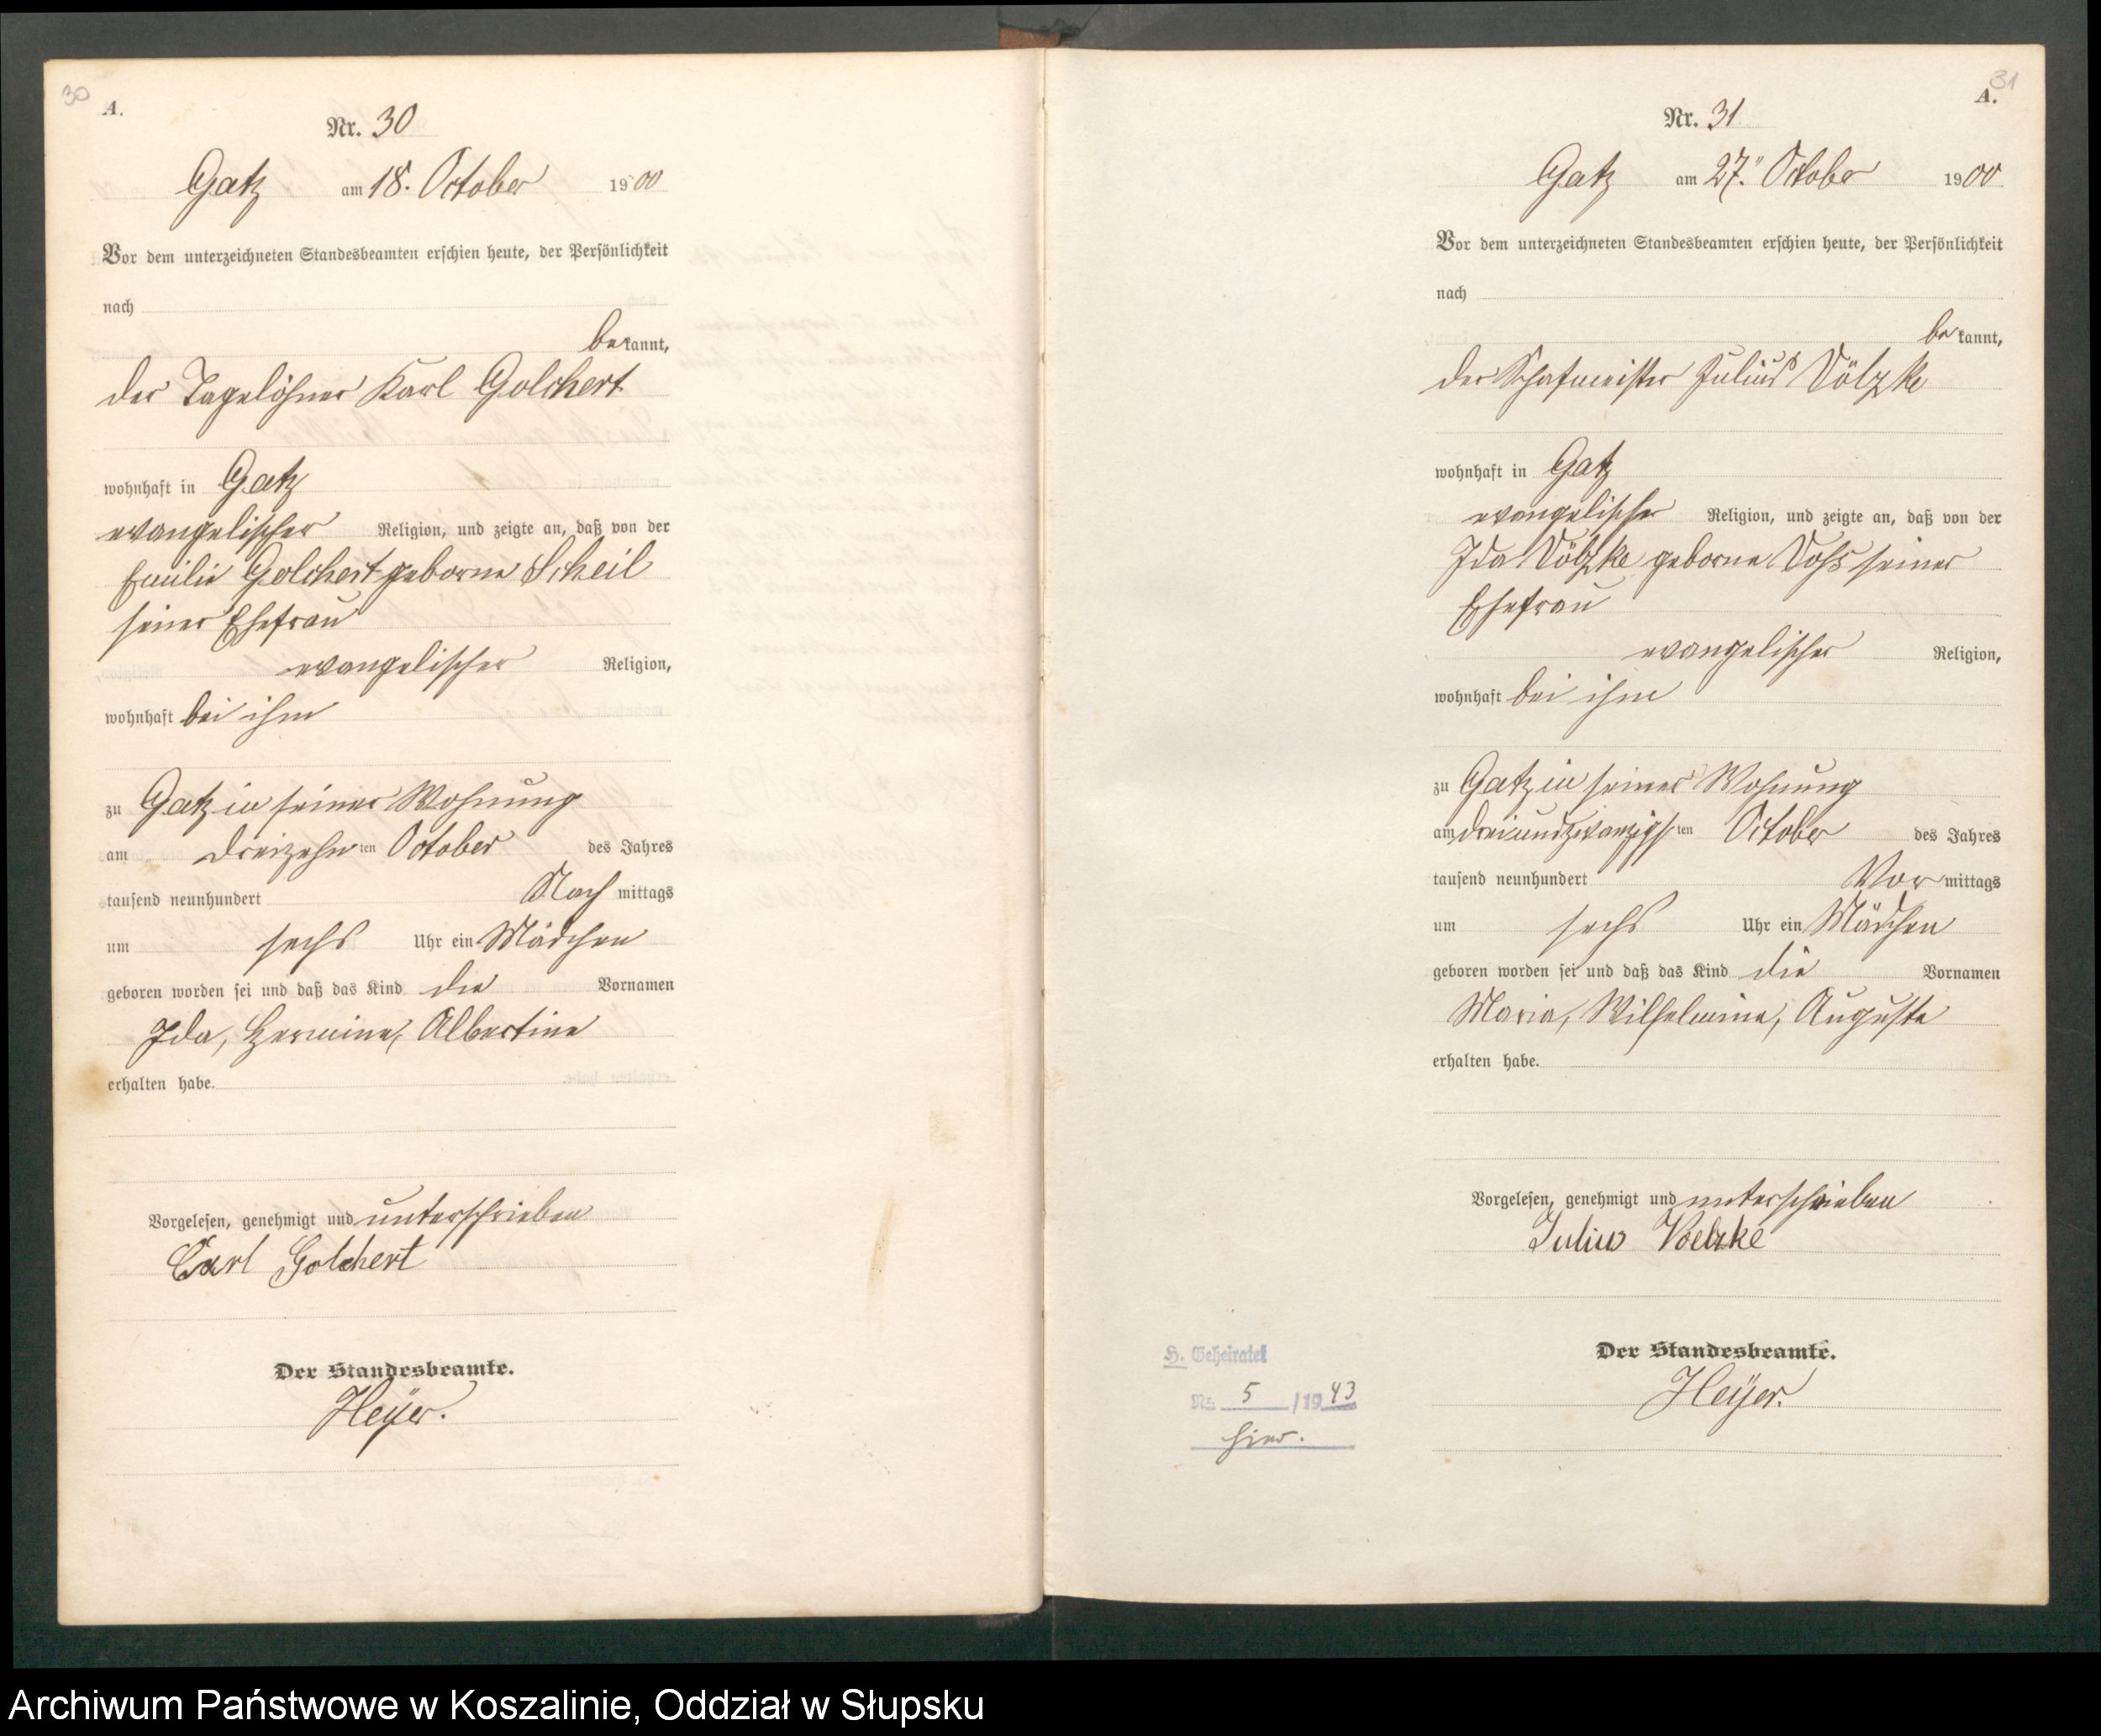 30
A.
Nr. 30
Gatz am 18. October 1900
Vor dem unterzeichneten Standesbeamten erschien heute, der Persönlichkeit
nach
bekannt,
der Tagelöhner Karl Golchert
wohnhaft in Gatz
evangelischer Religion, und zeigte an, daß von der
Emilie Golchert geborne Scheil
seiner Ehefrau
evangelischer Religion,
wohnhaft bei ihm
zu Gatz in seiner Wohnung
am dreizehnten October des Jahres
tausend neunhundert Nachmittags
um sechs Uhr ein Mädchen
geboren worden sei und daß das Kind die Vornamen
Ida, Hermine, Albertine
erhalten habe.
Vorgelesen, genehmigt und unterschrieben
Carl Golchert
Der Standesbeamte.
Heyer.
31
A.
Nr. 31
Gatz am 27. October 1900
Vor dem unterzeichneten Standesbeamten erschien heute, der Persönlichkeit
nach
bekannt,
der Schafmeister Julius Völzke
wohnhaft in Gatz
evangelischer Religion, und zeigte an, daß von der
Ida Völzke geborne Voß seiner
Ehefrau
evangelischer Religion,
wohnhaft bei ihm
zu Gatz in seiner Wohnung
am dreiundzwanzigsten October des Jahres
tausend neunhundert Vormittags
um sechs Uhr ein Mädchen
geboren worden sei und daß das Kind die Vornamen
Maria, Wilhelmine, Auguste
erhalten habe.
Vorgelesen, genehmigt und unterschrieben
Julius Voelzke
Der Standesbeamte.
Heyer.
H. Geheiratet
Nr. 5 /1943
hier.
Archiwum Państwowe w Koszalinie, Oddział w Słupsku